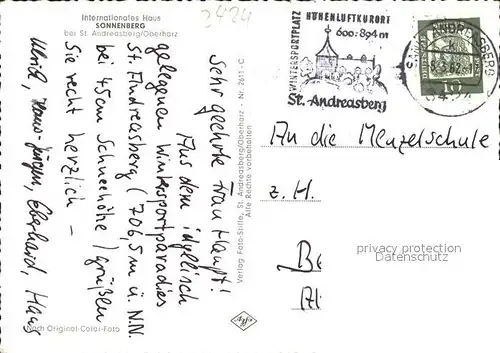 Internationales Haus
SONNENBERG
bei St. Andreasberg/Oberharz
3424
Sehr geehrte Frau Haupt!
Aus dem idyllisch
gelegenen Wintersportparadies
St. Andreasberg (706,5 m ü. N.N.
bei 45cm Schneehöhe) grüßen
Sie recht herzlich –
Ulrich, Hans-Jürgen, Eberhard, Hans
Nach Original-Color-Foto
Verlag Foto-Stille, St. Andreasberg/Oberharz · Nr. 2611-C
Alle Rechte vorbehalten
Agfa
WINTERSPORTPLATZ
HÖHENLUFTKURORT
600-894m
St. Andreasberg
ST. ANDREASBERG
10
An die Menzelschule
z. H.
privacy protection
Datenschutz